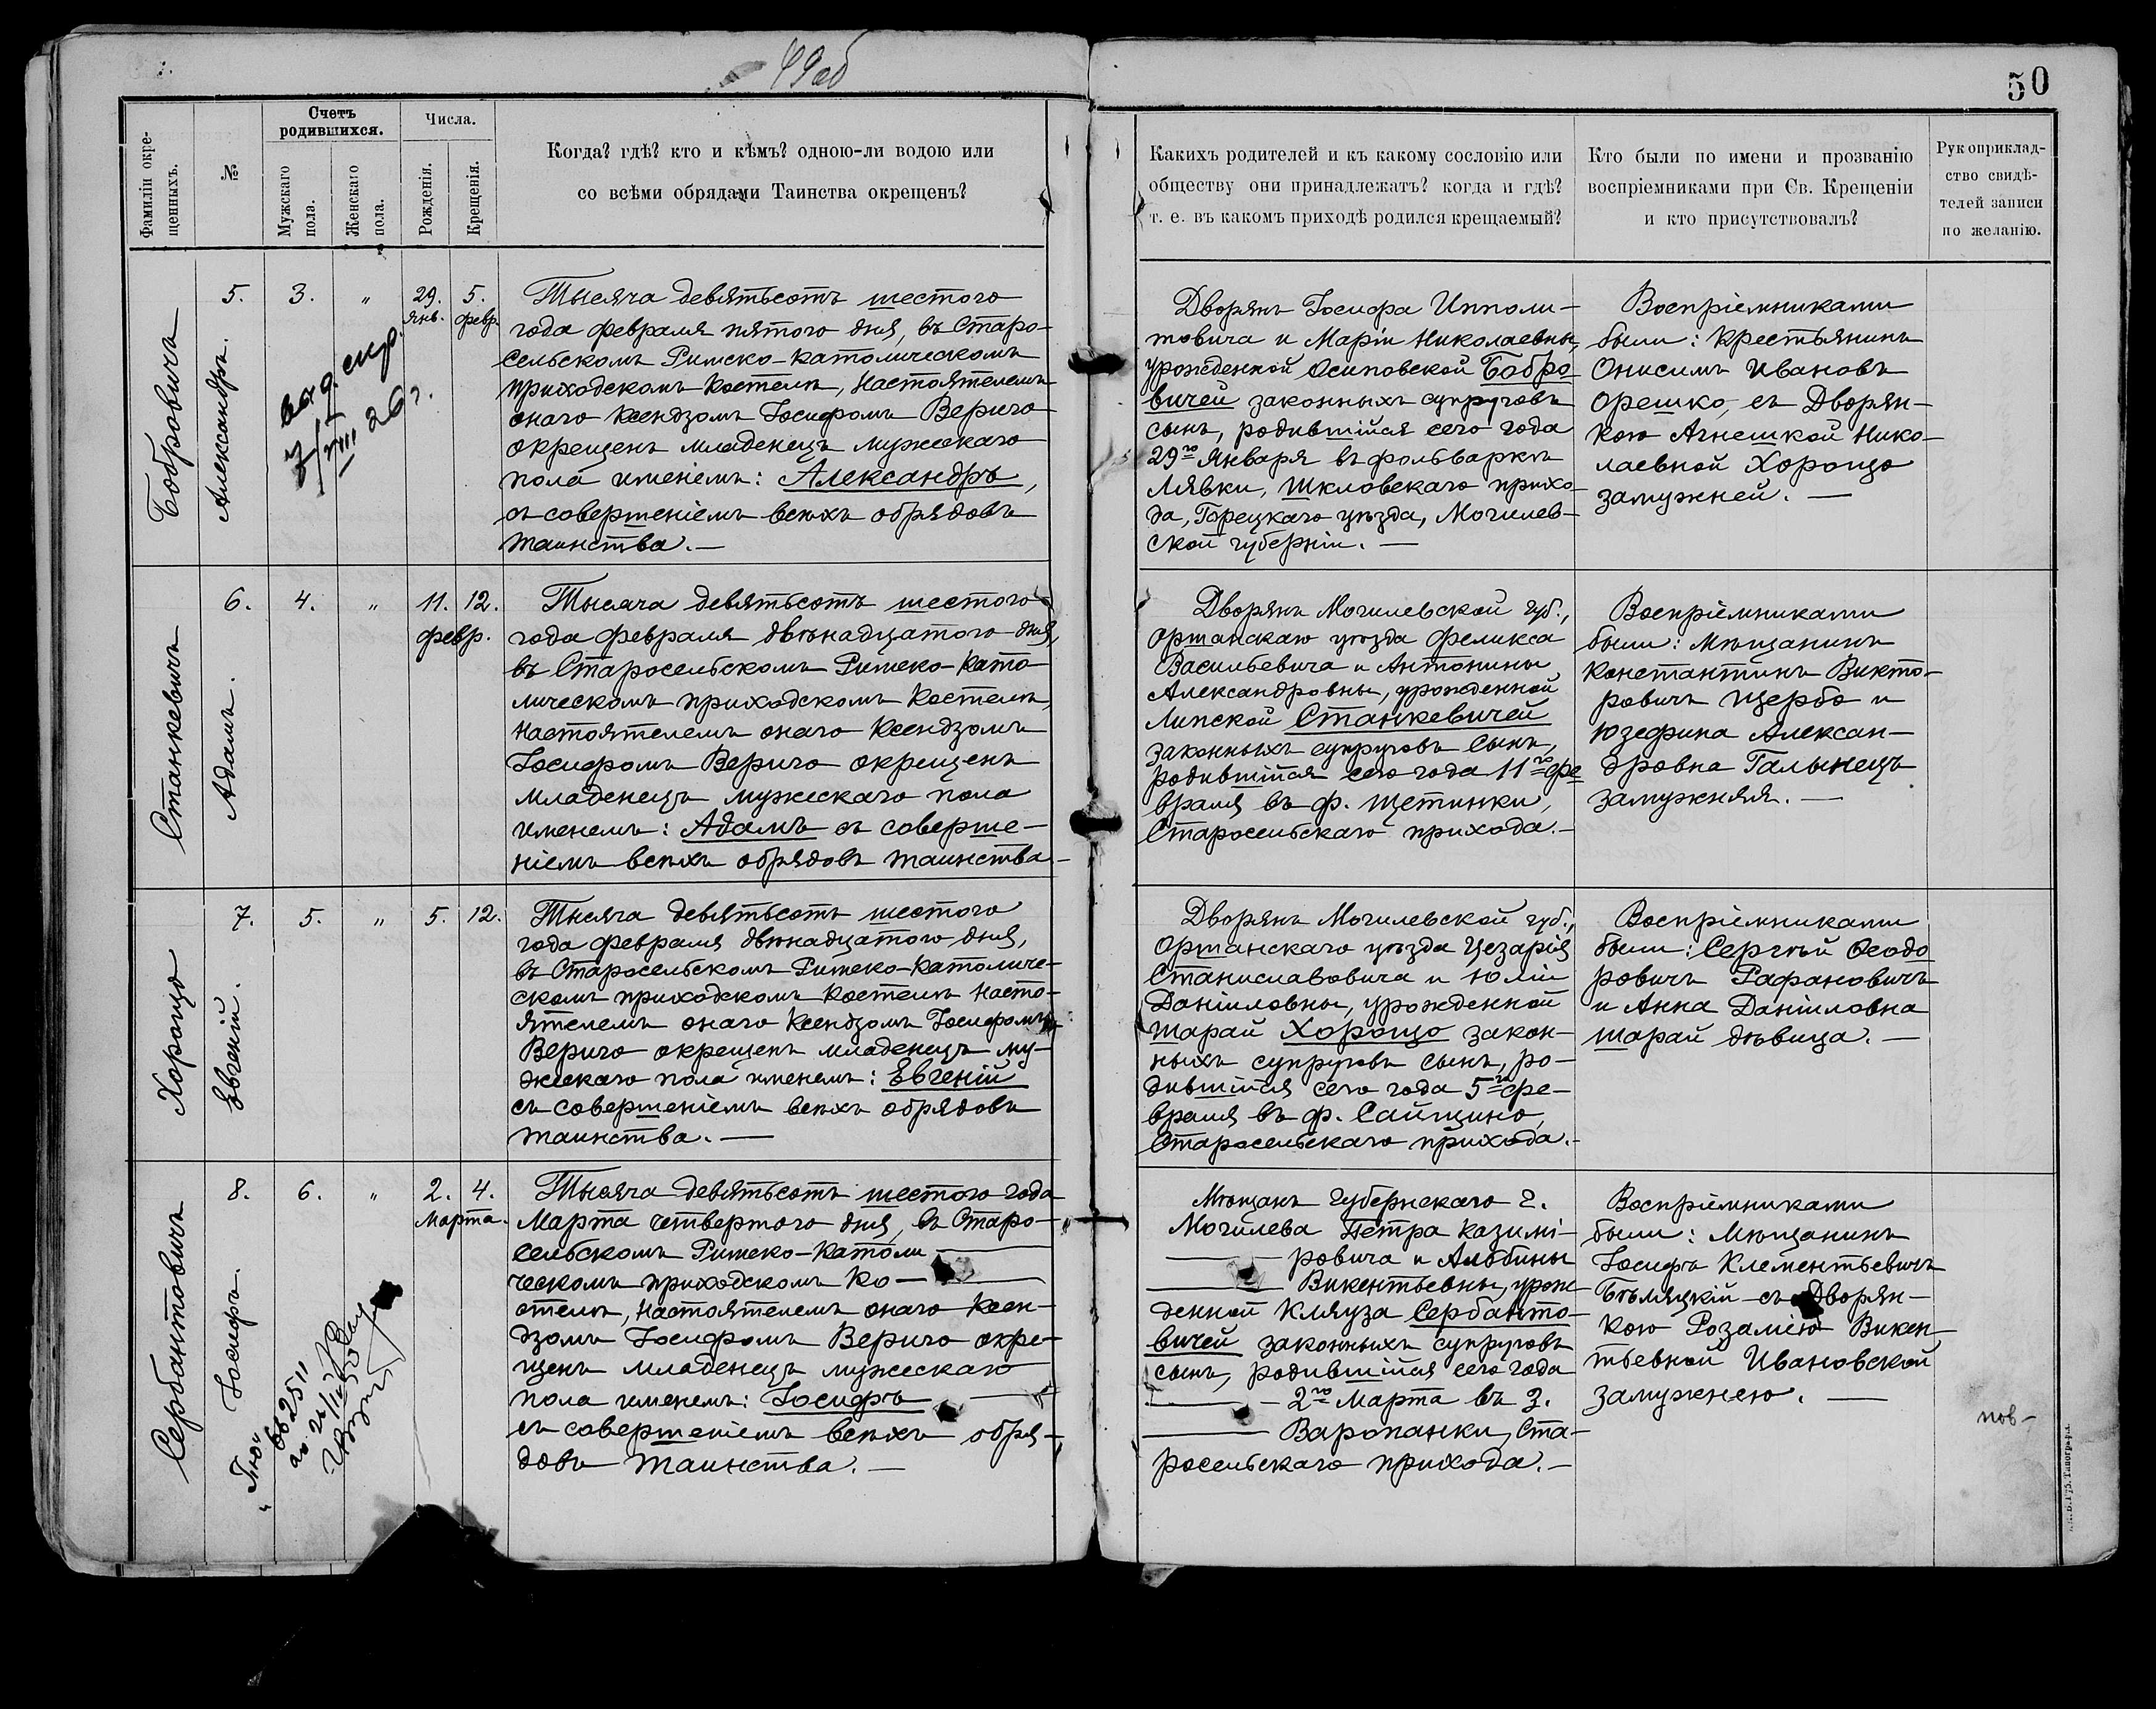 49об
50
Фамиліи окре-
щенныхъ.
№
Счетъ
родившихся.
Мужскаго
пола.
Женскаго
пола.
Числа.
Рожденія.
Крещенія.
Когда? гдѣ? кто и кѣмъ? одною-ли водою или
со всѣми обрядами Таинства окрещенъ?
Какихъ родителей и къ какому сословію или
обществу они принадлежатъ? когда и гдѣ?
т. е. въ какомъ приходѣ родился крещаемый?
Кто были по имени и прозванію
воспріемниками при Св. Крещеніи
и кто присутствовалъ?
Рукоприклад-
ство свидѣ-
телей записи
по желанію.
Бобровичъ
Александръ.
5.
3.
"
29.
Янв.
5.
февр.
выд. спр.
3/VIII 26 г.
Тысяча девятьсотъ шестого
года февраля пятого дня, въ Старо-
сельскомъ Римско-католическомъ
приходскомъ костелѣ, Настоятелемъ
онаго Ксендзомъ Іосифомъ Верыго
окрещенъ младенецъ мужескаго
пола именемъ: Александръ,
съ совершеніемъ всѣхъ обрядовъ
таинства. —
Дворянъ Іосифа Ипполи-
товича и Маріи Николаевны,
урожденной Осиповской Бобро
вичей законныхъ супруговъ
сынъ, родившійся сего года
29го Января въ фольваркѣ
Лявки, Шкловскаго прихо-
да, Горецкаго уѣзда, Могилев-
ской губерніи. —
Воспріемниками
были: Крестьянинъ
Онисимъ Ивановъ
Орешко, съ Дворян-
кою Агнешкой Нико-
лаевной Хорощо
замужней. —
Станкевичъ
Адамъ.
6.
4.
"
11. 12.
февр.
Тысяча девятьсотъ шестого
года февраля двѣнадцатого дня,
въ Старосельскомъ Римско-като
лическомъ приходскомъ костелѣ,
Настоятелемъ онаго Ксендзомъ
Іосифомъ Верыго окрещенъ
младенецъ мужескаго пола
именемъ: Адамъ съ соверше-
ніемъ всѣхъ обрядовъ таинства. —
Дворянъ Могилевской губ.,
Оршанскаго уѣзда Феликса
Васильевича и Антонины
Александровны, урожденной
Липской Станкевичей
законныхъ супруговъ сынъ,
родившійся сего года 11го фе
враля въ ф. Щетинки,
Старосельскаго прихода. —
Воспріемниками
были: Мѣщанинъ
Константинъ Викто-
ровичъ Щербо и
Юзефина Алексан-
дровна Галынецъ
замужняя. —
Хорощо
Евгеній.
7.
5.
"
5. 12.
Тысяча девятьсотъ шестого
года февраля двѣнадцатого дня,
въ Старосельскомъ Римско-Католиче-
скомъ приходскомъ костелѣ Насто-
ятелемъ онаго Ксендзомъ Іосифомъ
Верыго окрещенъ младенецъ му-
жескаго пола именемъ: Евгеній
съ совершеніемъ всѣхъ обрядовъ
таинства. —
Дворянъ Могилевской губ.,
Оршанскаго уѣзда Цезарія
Станиславовича и Юліи
Даніиловны, урожденной
Шарай Хорощо закон-
ныхъ супруговъ сынъ, ро-
дившійся сего года 5го фе-
враля въ ф. Сайщино,
Старосельскаго прихода. —
Воспріемниками
были: Сергѣй Ѳеодо
ровичъ Рафановичъ
и Анна Даніиловна
Шарай дѣвица. —
Сербантовичъ
Іосифъ.
8.
6.
"
2. 4.
Марта.
Тысяча девятьсотъ шестого года
Марта четвертого дня, въ Старо-
сельскомъ Римско-Католи —
ческомъ приходскомъ Ко —
стелѣ, Настоятелемъ онаго Ксен-
дзомъ Іосифомъ Верыго окре-
щенъ младенецъ мужескаго
пола именемъ: Іосифъ —
съ совершеніемъ всѣхъ обря-
довъ таинства. —
Мѣщанъ губернскаго г.
Могилева Петра Казимі-
— ровича и Альбины
— Викентьевны, урож
денной Кляуза Сербанто-
вичей законныхъ супруговъ
сынъ, родившійся сего года
— 2го Марта въ З.
— Варопанки, Ста-
росельскаго прихода. —
Воспріемниками
были: Мѣщанинъ
Іосифъ Клементьевичъ
Бѣляцкій съ Дворян-
кою Розаліею Викен
тьевной Ивановской
замужнею. —
пов-